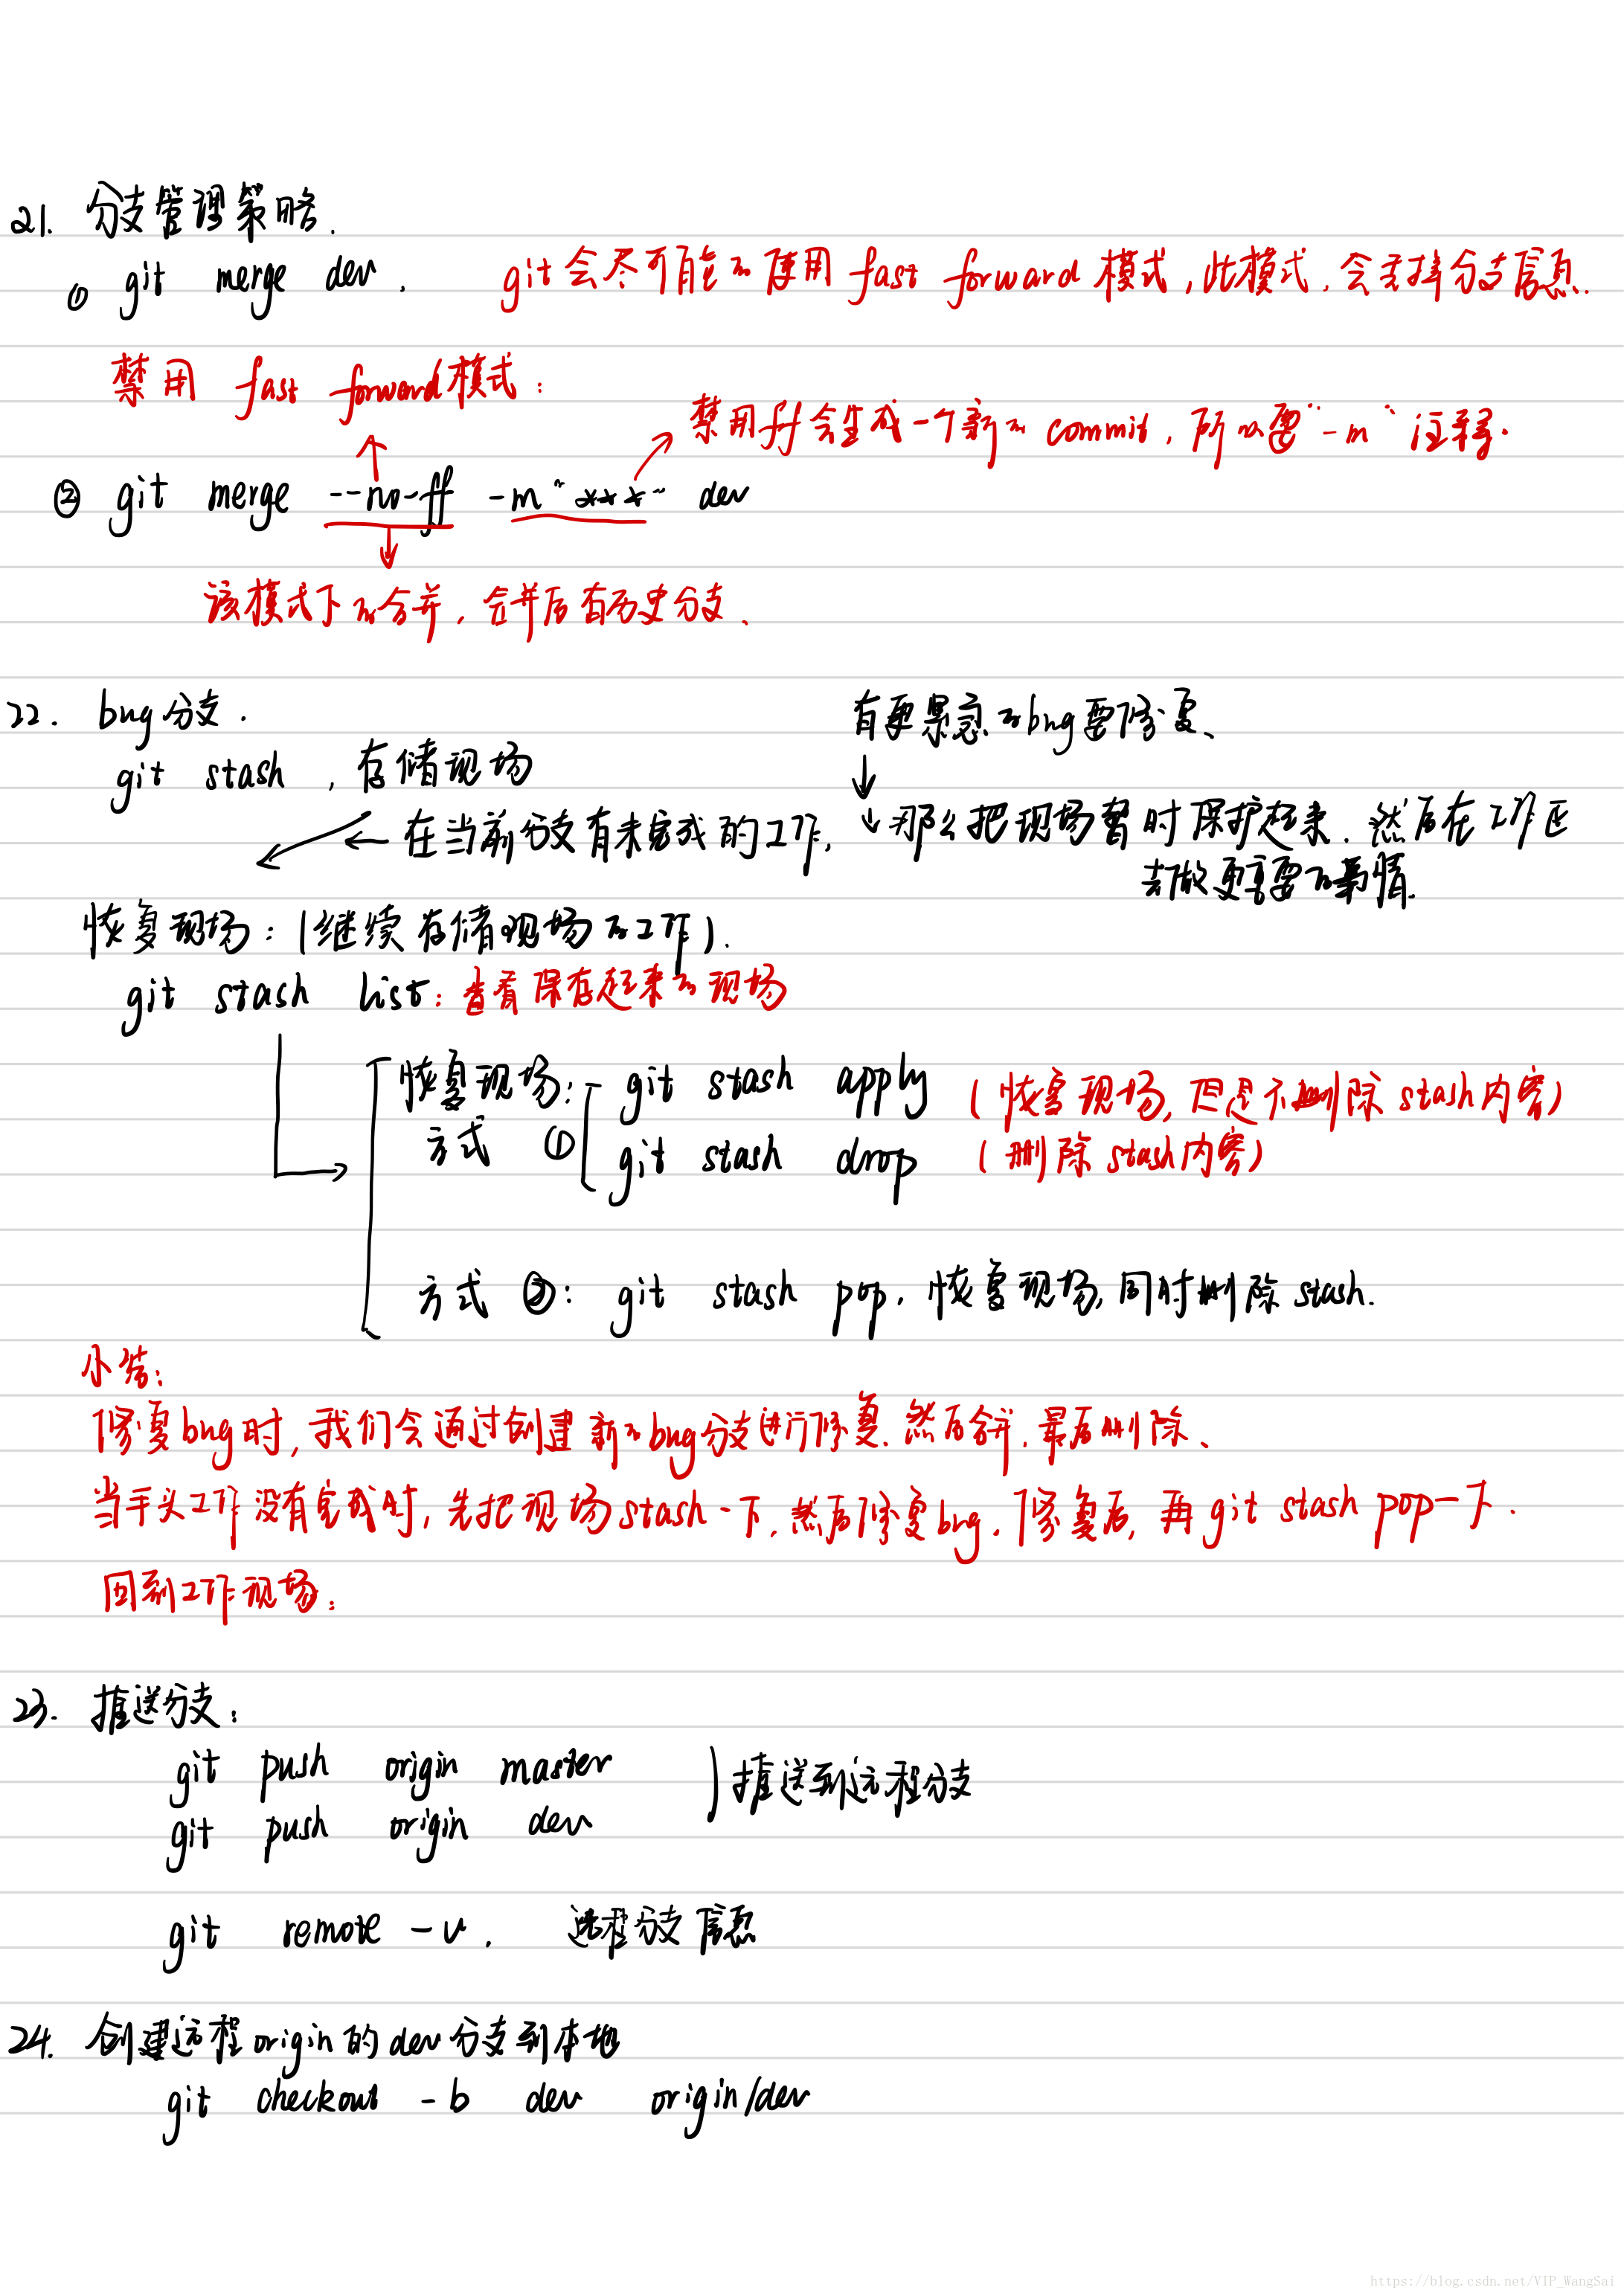 21. 分支管理策略.
① git merge dev. git会尽可能的使用 fast forward 模式,此模式,会丢掉分支信息.
禁用 fast forward模式:
禁用ff会生成一个新的 commit, 所以要"-m"注释.
② git merge --no-ff -m "***" dev
该模式下的合并, 合并后有历史分支、
22. bug分支. 有更紧急的bug要修复、
git stash , 存储现场
在当前分支有未完成的工作, 那么把现场暂时保护起来. 然后在工作区
去做更重要的事情.
恢复现场: (继续存储现场的工作).
git stash list: 查看保存起来的现场
恢复现场: git stash apply (恢复现场, 但是不删除 stash内容)
方式 ① git stash drop (删除 stash内容)
方式 ②: git stash pop, 恢复现场, 同时删除 stash.
小结:
修复bug时, 我们会通过创建新的bug分支进行修复. 然后合并, 最后删除、
当手头工作没有完成时, 先把现场stash一下, 然后修复bug. 修复后, 再 git stash pop一下.
回到工作现场.
23. 推送分支:
git push origin master
推送到远程分支
git push origin dev
git remote -v. 远程分支信息
24. 创建远程origin的dev分支到本地
git checkout -b dev origin/dev
https://blog.csdn.net/VIP_WangSai